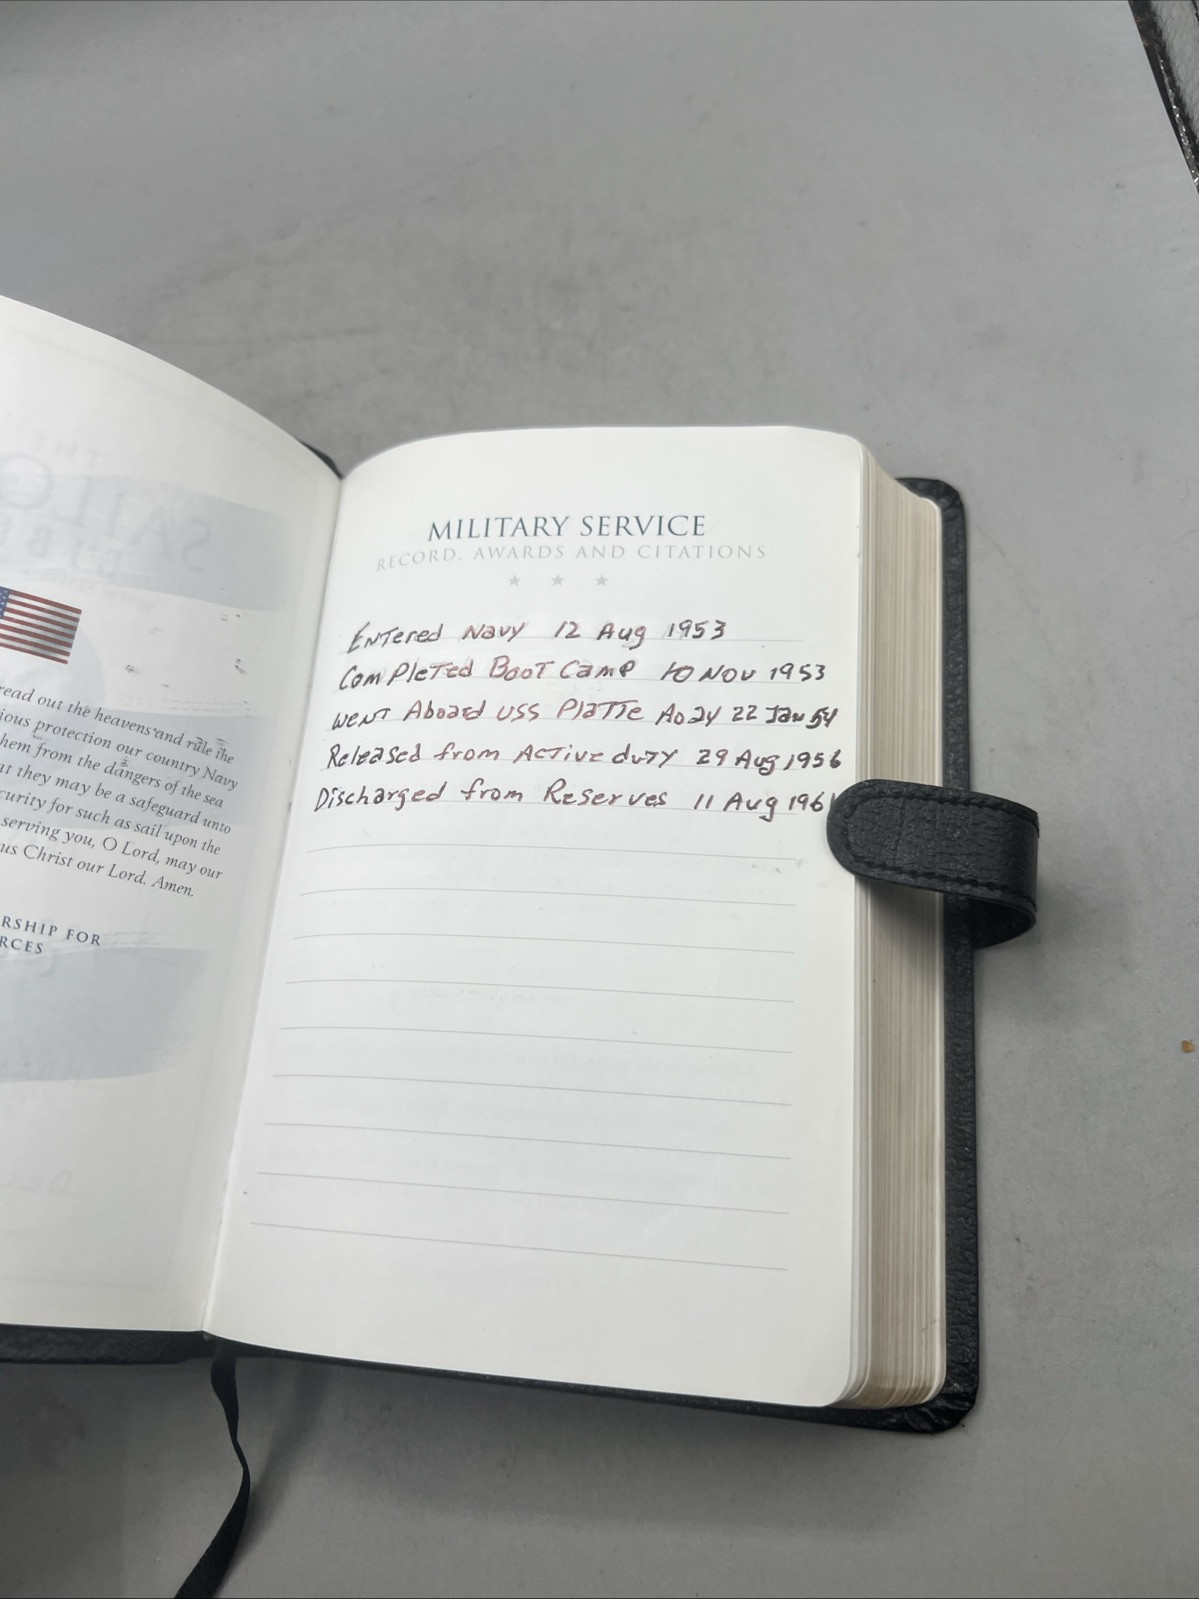 read out the heavens and rule the
ious protection our country Navy
hem from the dangers of the sea
at they may be a safeguard unto
curity for such as sail upon the
serving you, O Lord, may our
us Christ our Lord. Amen.
RSHIP FOR
RCES
MILITARY SERVICE
RECORD, AWARDS AND CITATIONS
Entered Navy 12 Aug 1953
Completed Boot Camp 10 Nov 1953
went Aboard USS Platte AO24 22 Jan 54
Released from Active duty 29 Aug 1956
Discharged from Reserves 11 Aug 1961